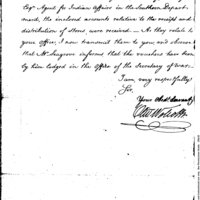 Esqr Agent for Indian Affairs in the Southern Depart-
ment, the inclosed accounts relative to the receipt and
distribution of Stores were received — As they relate to
your Office, I now transmit them to you and observe
that Mr Seagrove informs that the vouchers have been
by him lodged in the Office of the Secretary of War.
I am, very respectfully
Sir,
Your Obedt Servant
Oliv Wolcott